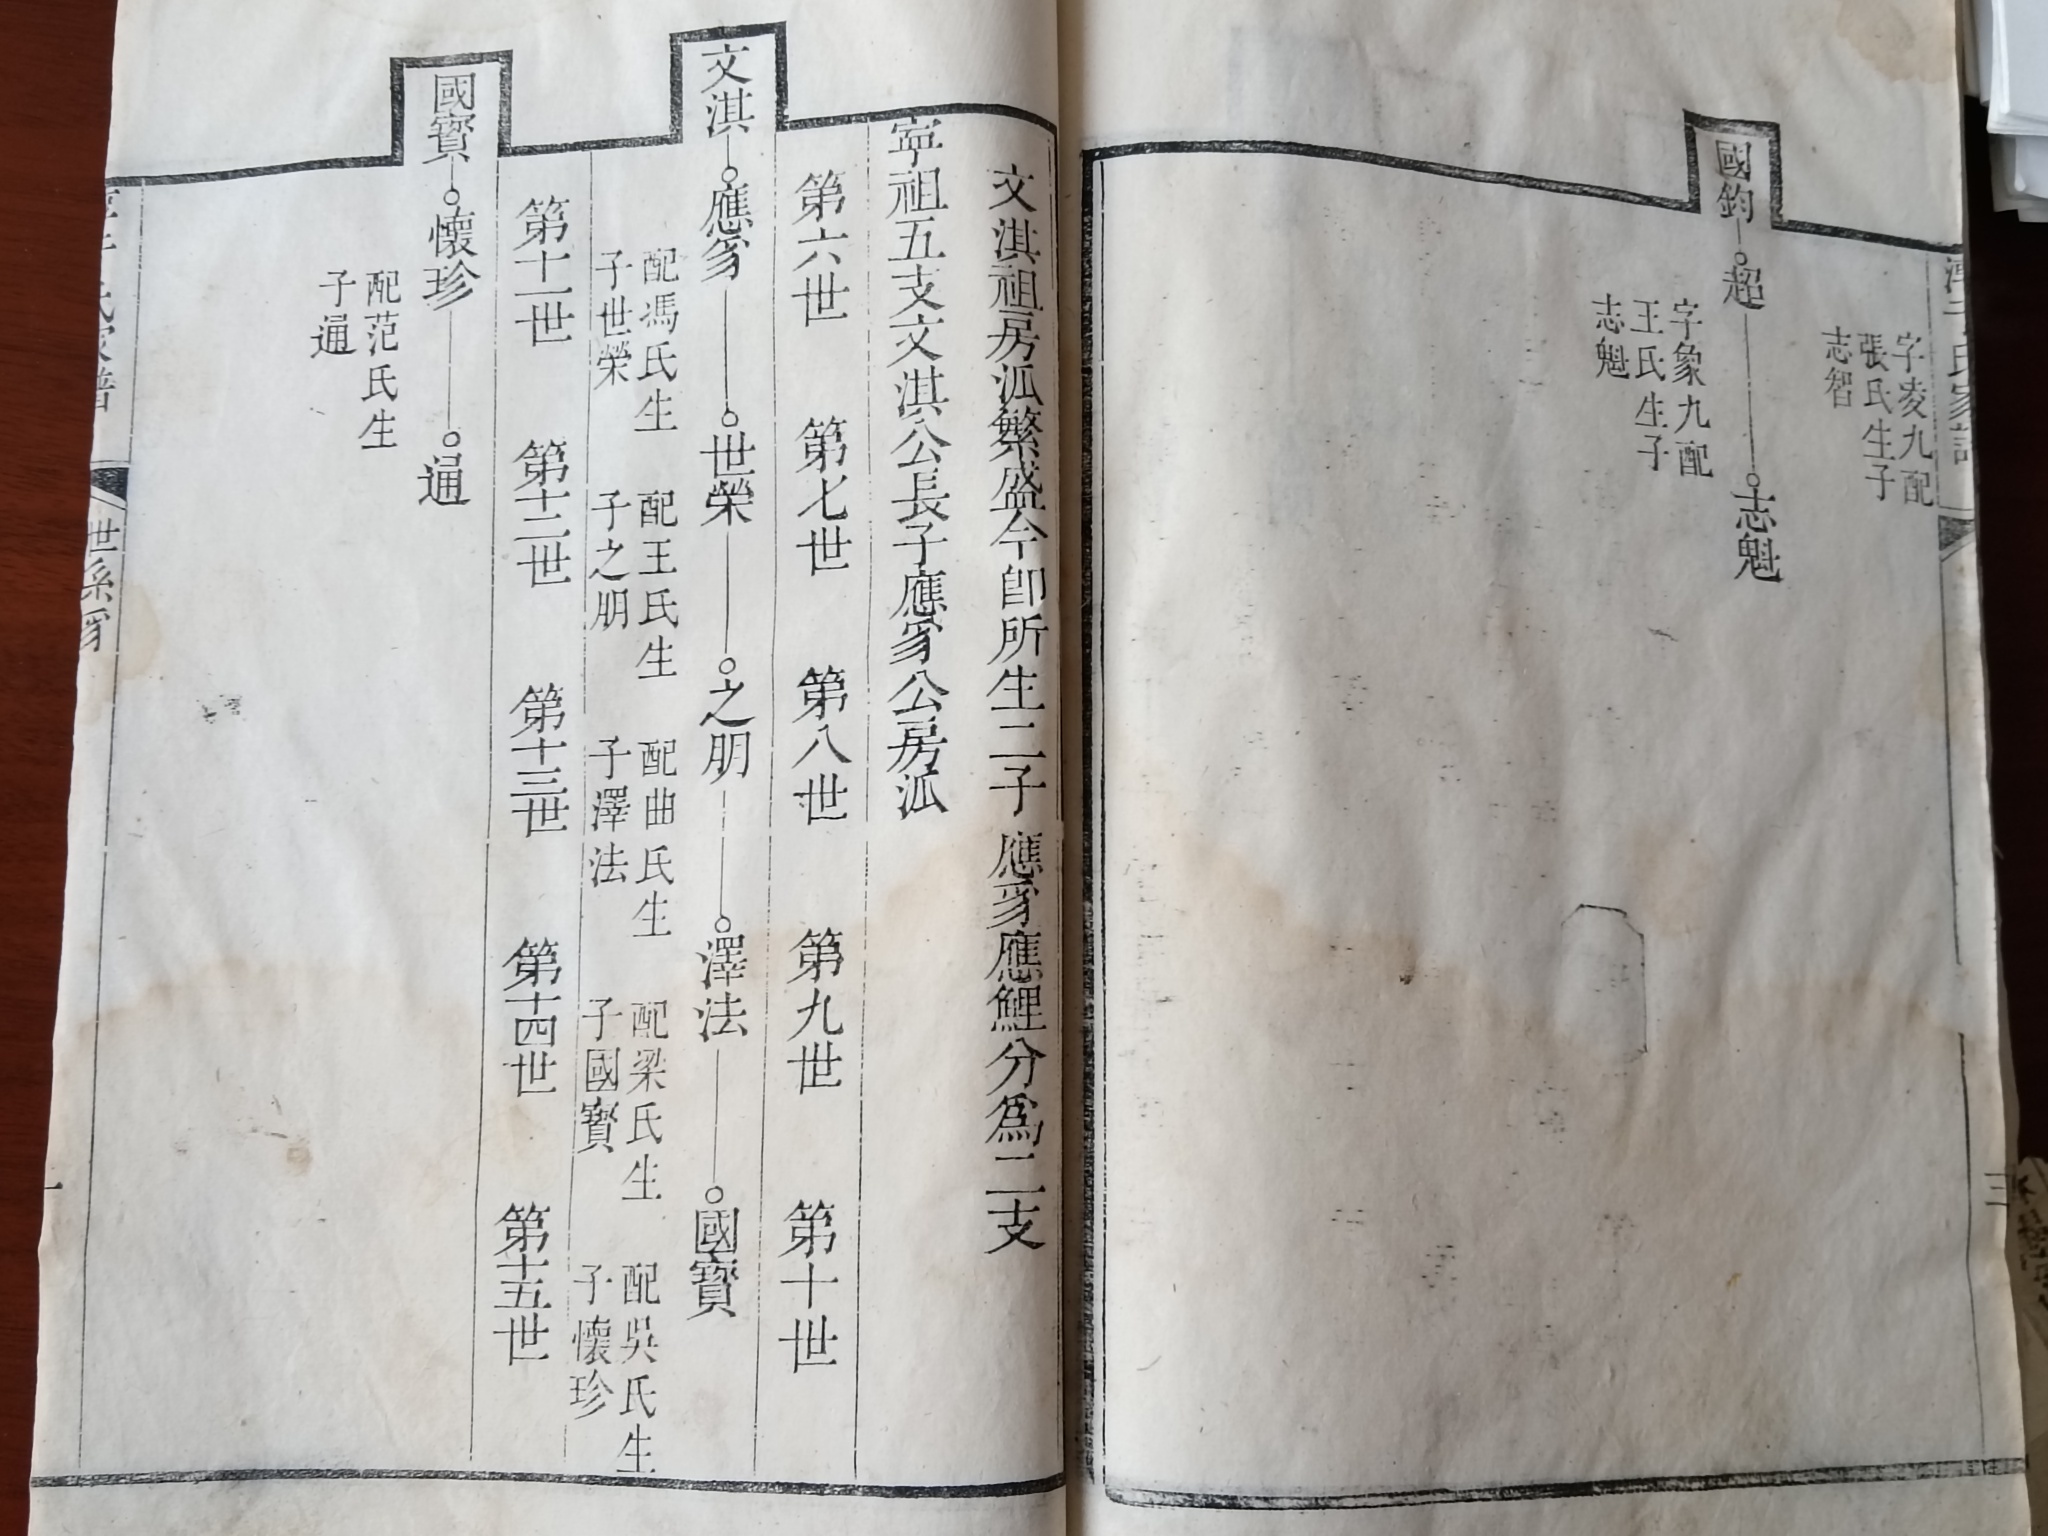 字凌九配
張氏生子
志智
國鈞 超 志魁
字象九配
王氏生子
志魁
三
文淇祖房泒繁盛今卽所生二子應豸應鯉分爲二支
寧祖五支文淇公長子應豸公房泒
第六世 第七世 第八世 第九世 第十世
文淇 應豸 世榮 之朋 澤法 國寳
配馮氏生 配王氏生 配曲氏生 配梁氏生 配吳氏生
子世榮 子之朋 子澤法 子國寳 子懷珍
第十一世 第十二世 第十三世 第十四世 第十五世
國寳 懷珍 通
配范氏生
子通
世系豸
一